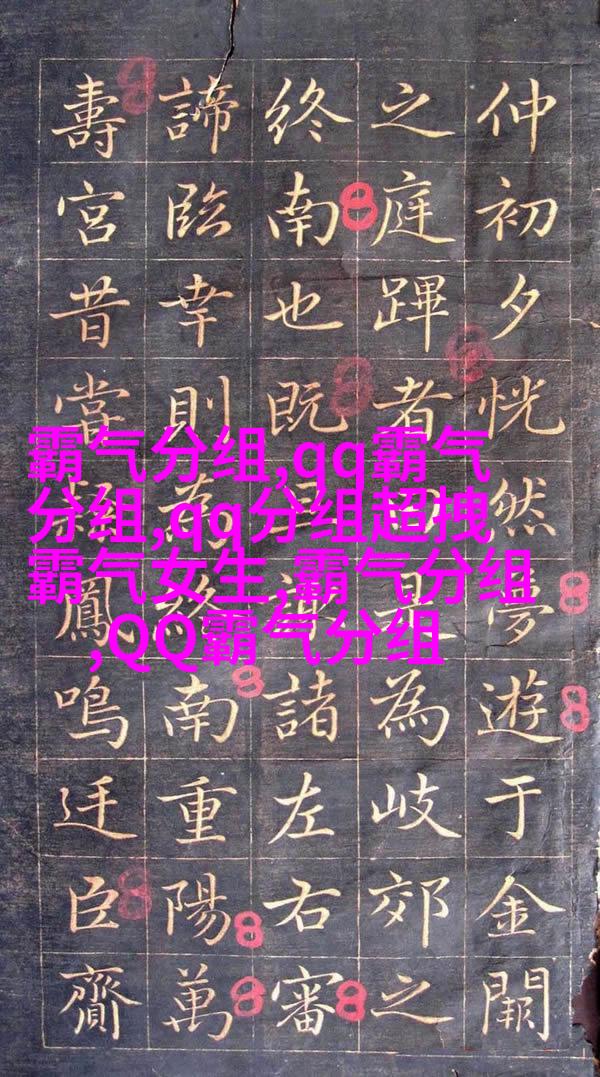 仲初夕恍然夢遊于金闕
之庭蹕者是為岐郊之
終南也既諸左右審
諦臨幸則終南重陽萬
壽宮昔當鳳鳴廷臣齎
霸气分组,qq霸气
分组,qq分组超拽
霸气女生,霸气分组
,QQ霸气分组